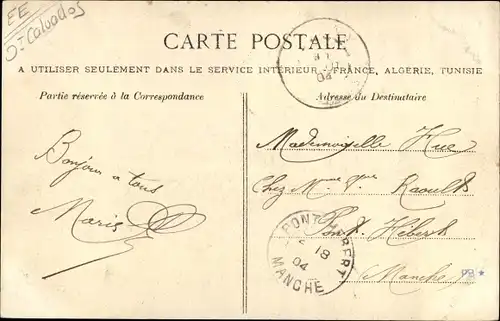 EE
Dt Calvados
CARTE POSTALE
A UTILISER SEULEMENT DANS LE SERVICE INTÉRIEUR FRANCE, ALGÉRIE, TUNISIE
Partie réservée à la Correspondance
Adresse du Destinataire
04
Bonjour a tous
Maria
Mademoiselle Hue
Chez Mme Vve Raoult
Pont. Hébert
Manche
PONT-HÉBERT
18
04
MANCHE